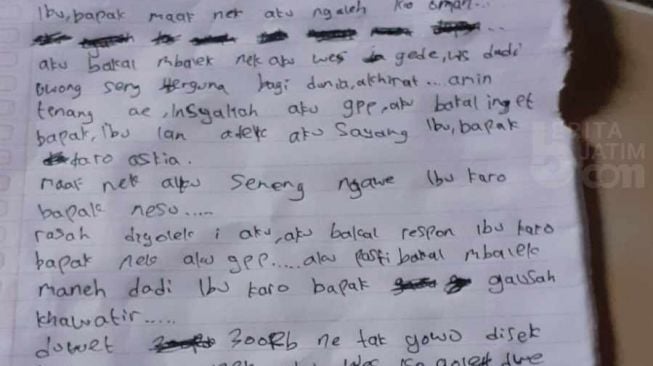 Ibu, bapak maaf nek aku ngaleh ko omah...
aku bakal mbalek nek aku wes gede, ws dadi
owong seng berguna bagi dunia, akhirat... amin
tenang ae, Insyallah aku gpp, aku bakal inget
bapak, ibu lan adek aku sayang Ibu, bapak
karo askia.
maaf nek aku seneng ngawe Ibu karo
bapak nesu.....
rasah digoleki aku, aku bakal respon Ibu karo
bapak nek aku gpp..... aku pasti bakal mbalek
maneh dadi Ibu karo bapak gausah
khawatir.....
duwet 300Rb ne tak gowo disek
BERITA
JATIM
.com